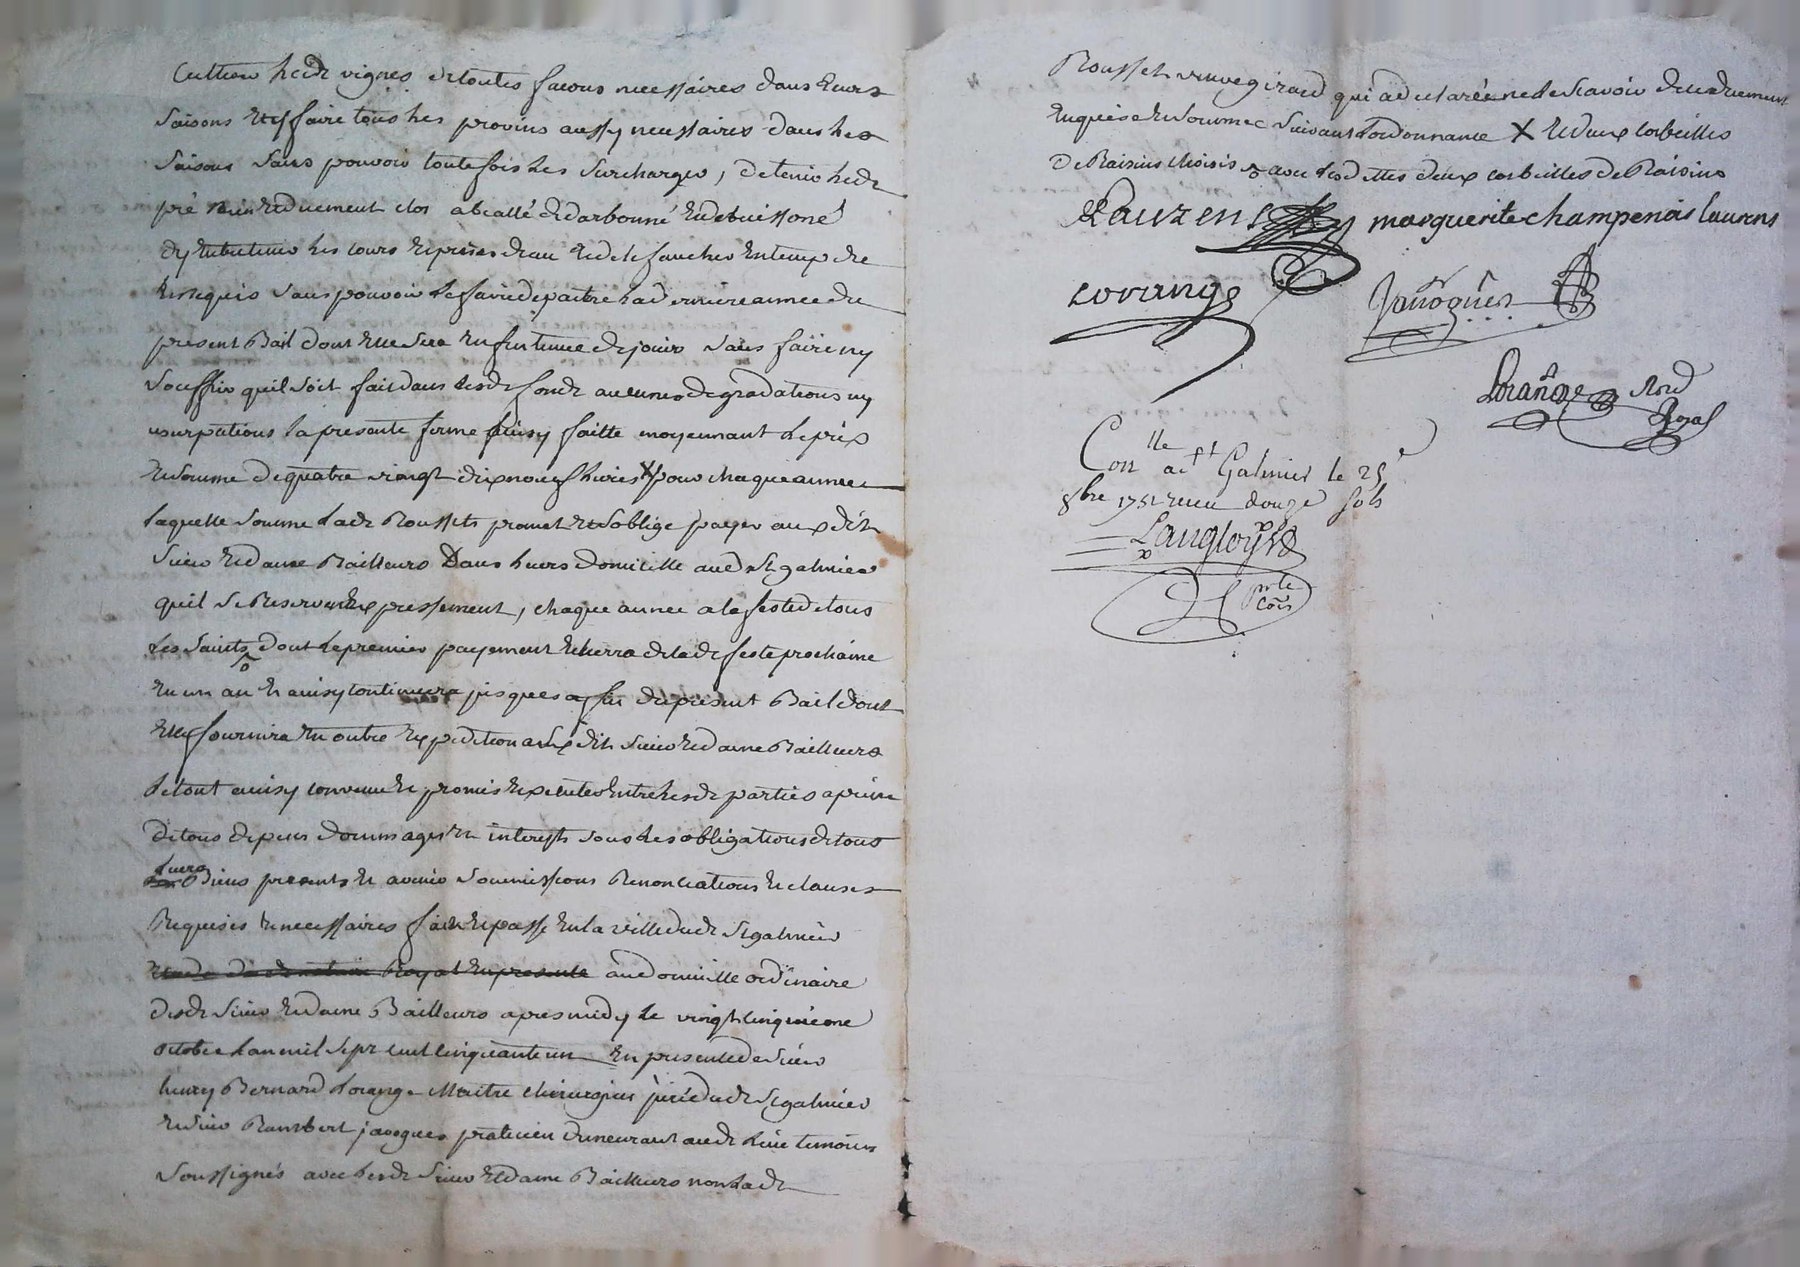 Cultiver lesd. vignes de toutes facons necessaires dans leurs
saisons et y faire tous les provins aussy necessaires dans les
saisons sans pouvoir toutefois les surcharger, de tenir led.
pré bien et duement clos
et entretenir les cours et prises d'eau et de le faucher en temps de
et requis sans pouvoir le faire depaitre la derniere année du
present Bail dont elle sera de jouir sans faire ny
souffrir quil soit fait dans lesd. fonds aucunes degradations ny
usurpations la presente ferme ainsy faitte moyennant le prix
et somme de quatre vingt dix neuf livres X pour chaque année
laquelle somme lade. Roussets promet et s'oblige payer auxdits
Sieur et dame Bailleurs Dans leurs domicille aud. St galmier
quil se Reservent expressement, chaque année a la feste de tous
les saints dont le premier payement echerra de lade. feste prochaine
en un an et ainsy continuera jusques a fin du present Bail dont
elle fournira en outre expedition auxdits Sieur et dame Bailleurs
le tout ainsy convenu et promis executer entre lesd. parties a peine
de tous depens dommages et interests sous les obligations de tous
leurs Biens presents et avenir soumissions Renonciations et clauses
Requises et necessaires fait et passé en la ville dud. St galmier
Royal au domicille ordinaire
desd. Sieur et dame Bailleurs apres midy le vingt cinquieme
octobre l'an mil sept cent cinquante un en presence de Sieur
henry Bernard Lorange Maitre chirurgien juré dud. St galmier
et Sieur Rambert javogues praticien demeurant aud. lieu temoins
soussignés avec lesd. Sieur et dame Bailleurs non lade.
Rousset veuve giraud qui a declaré ne le scavoir de ce duement
enquise et sommée suivant l'ordonnance X et deux corbeilles
de Raisins choisis & avec lesdittes deux corbeilles de Raisins
Lauzens marguerite champenois laurens
Lorange Javogues
Lorange Nore
Royal
Conlle a St Galmier le 25e
8bre 1751 recu douze sols
Langlois